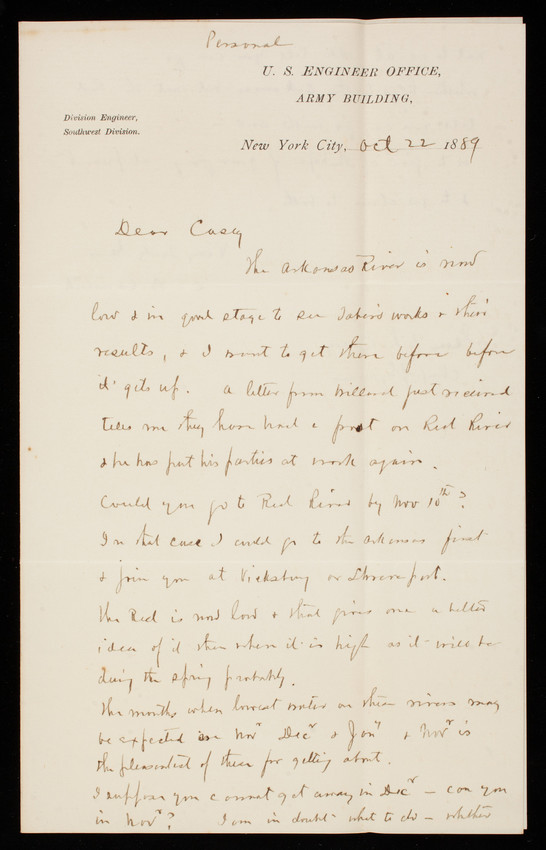 Personal
U. S. ENGINEER OFFICE,
ARMY BUILDING,
Division Engineer,
Southwest Division.
New York City, Oct 22 1889
Dear Casey
The Arkansas River is now
low & in good stage to see Taber's works & their
results, & I want to get there before before
it gets up. A letter from Willard just received
tells me they have had a frost on Red River
& he has put his parties at work again.
Could you go to Red River by Nov 10th?
In that case I could go to the Arkansas first
& join you at Vicksburg or Shreveport.
The Red is now low & that gives one a better
idea of it than when it is high as it will be
during the spring probably.
The months when lowest water on these rivers may
be expected are Novr Decr & Jany & Novr is
the pleasantest of these for getting about.
I suppose you cannot get away in Decr – can you
in Novr? I am in doubt what to do – whether